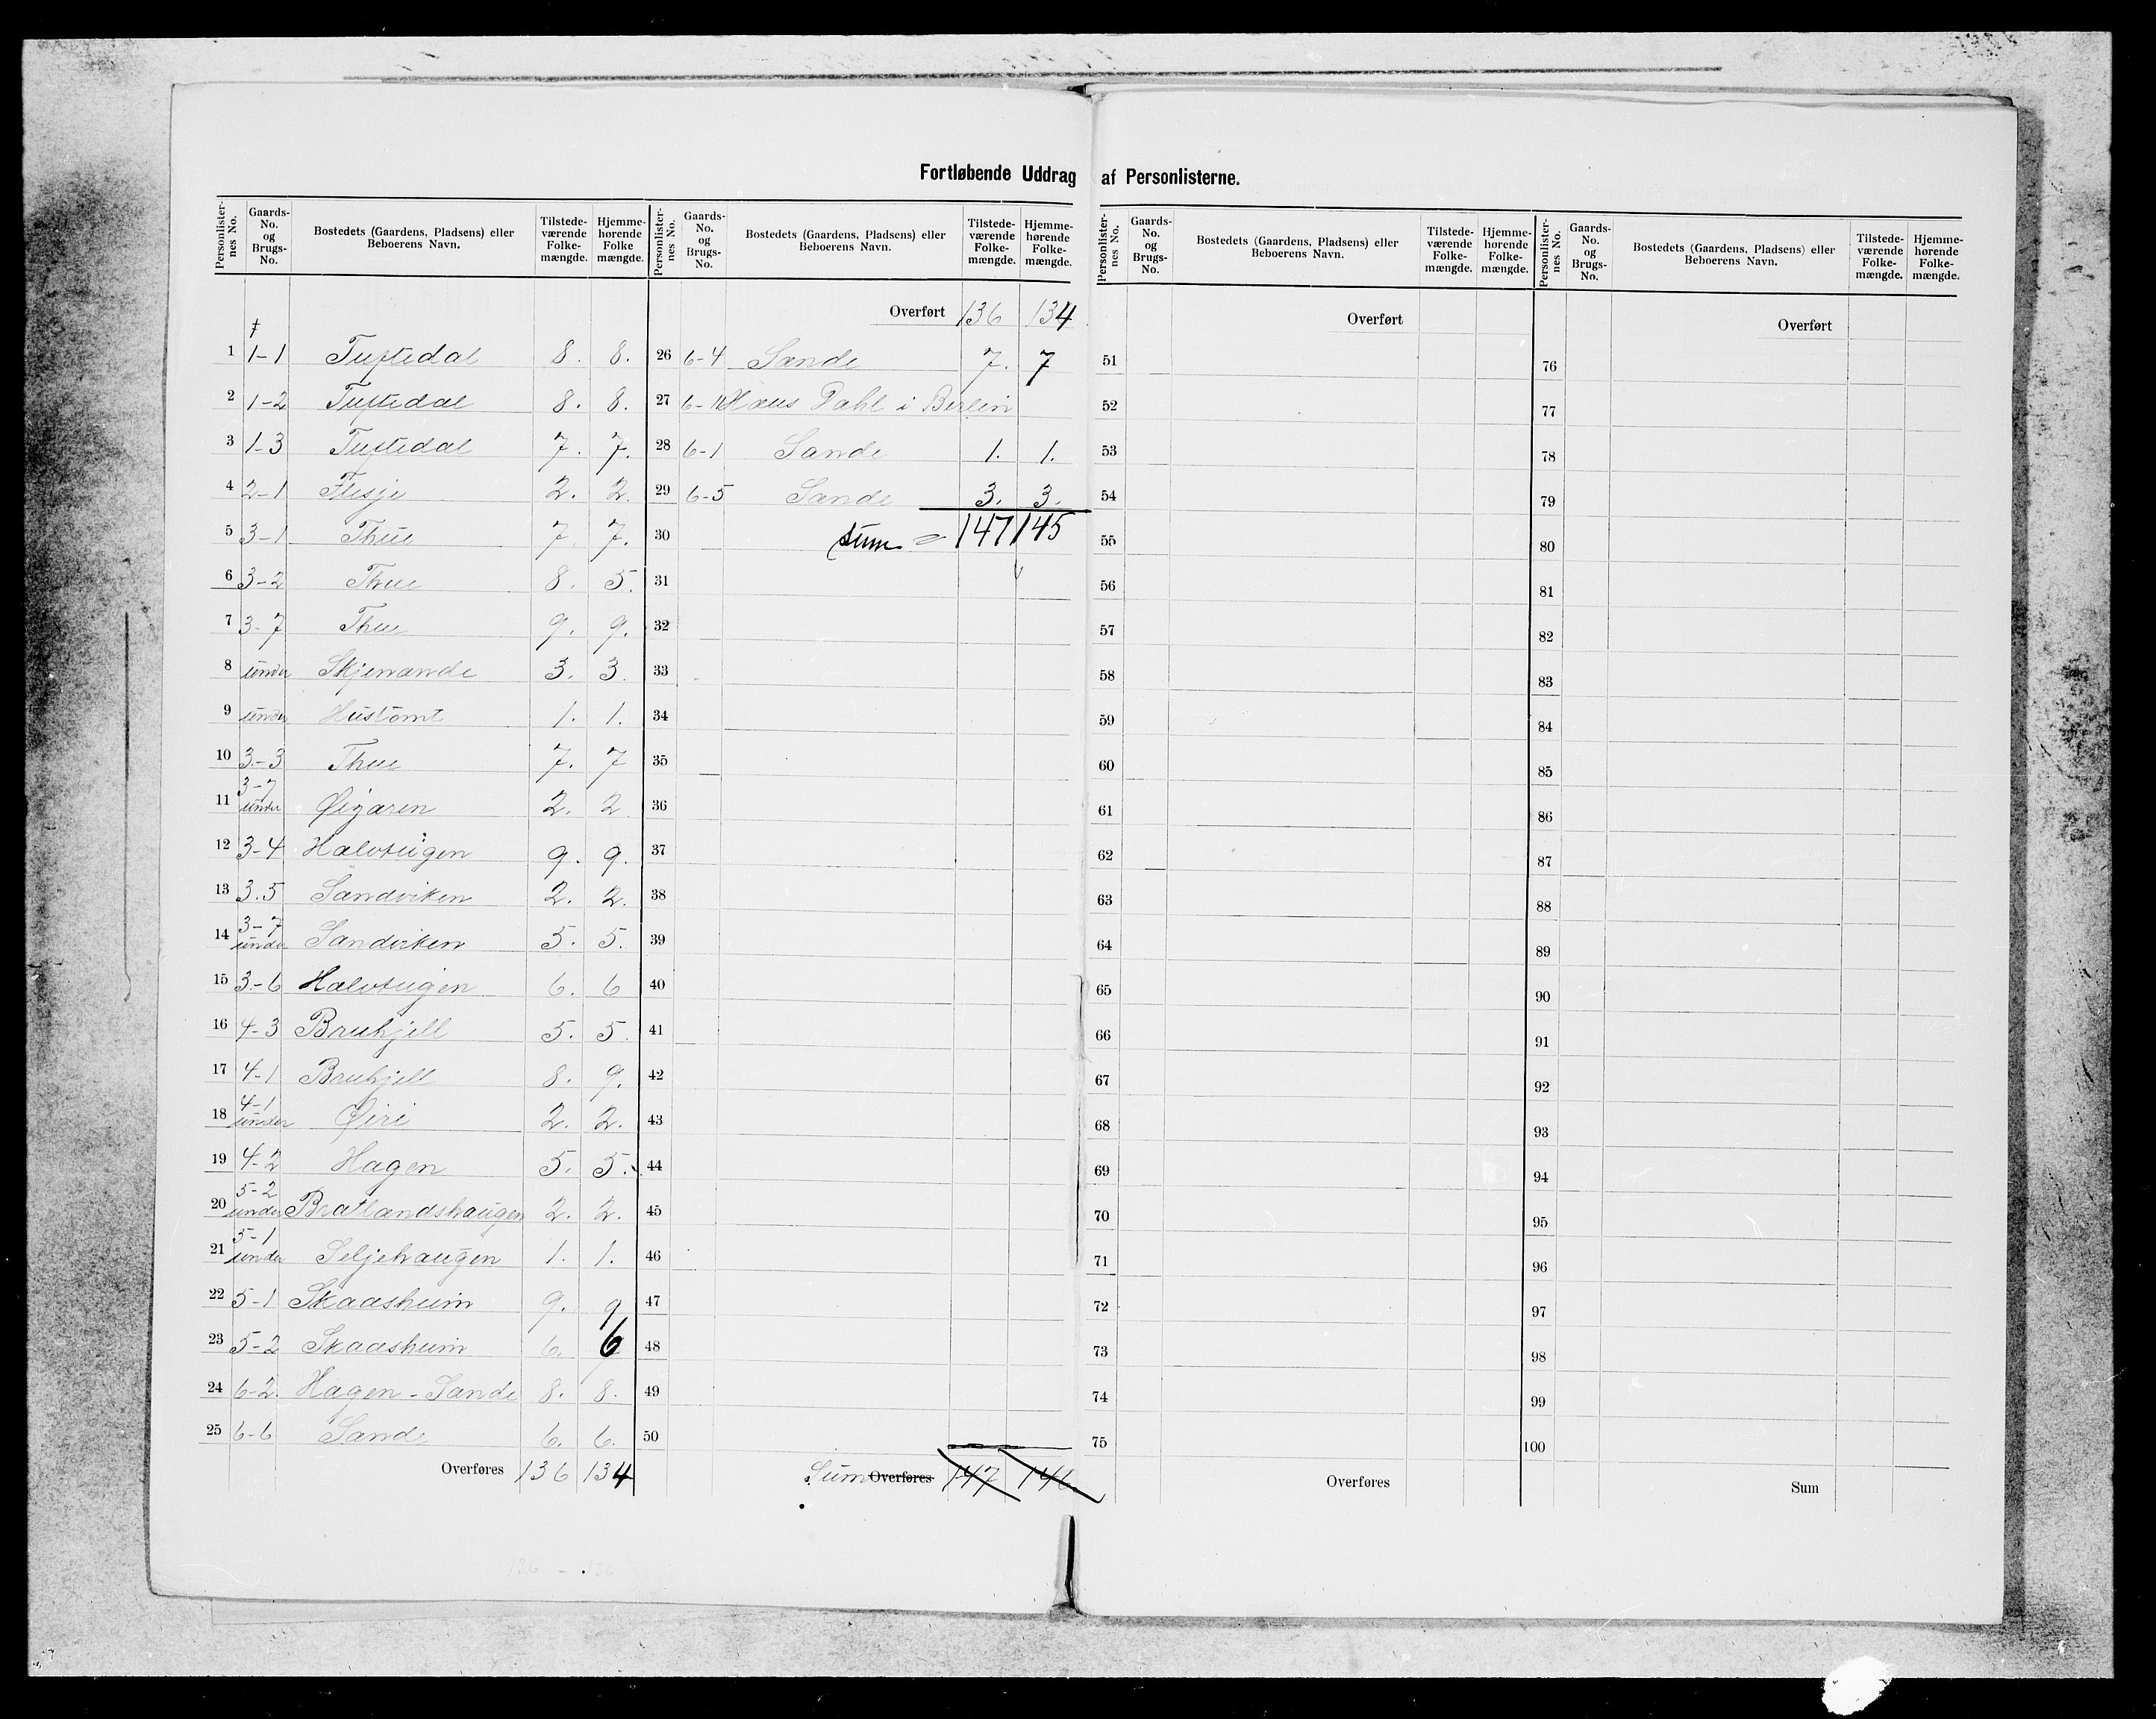 Fortløbende Uddrag af Personlisterne.
Personlister-nes No. Gaards-No. og Brugs-No. Bostedets (Gaardens, Pladsens) eller Beboerens Navn. Tilstede-værende Folke-mængde. Hjemme-hørende Folke mængde.
1 1-1 Tuftedal 8. 8.
2 1-2 Tuftedal 8. 8.
3 1-3 Tuftedal 7. 7.
4 2-1 Flesje 2. 2.
5 3-1 Thue 7 7.
6 3-2 Thue 8. 5.
7 3-7 Thue 9. 9.
8 under Skjenande 3. 3.
9 under Hustomt 1. 1.
10 3-3 Thue 7. 7
11 3-7 under Øigaren 2. 2
12 3-4 Halvteigen 9. 9.
13 3.5 Sandviken 2. 2.
14 3-7 under Sandviken 5. 5.
15 3-6 Halvteigen 6. 6
16 4-3 Bruhjell 5. 5.
17 4-1 Bruhjell 8. 9.
18 4-1 under Øiri 2. 2.
19 4-2 Hagen 5. 5.
20 5-2 under Bratlandshaugen 2. 2.
21 5-1 under Seljehaugen 1. 1.
22 5-1 Skaasheim 9. 9
23 5-2 Skaasheim 6. 6
24 6-2 Hagen-Sande 8. 8.
25 6-6 Sande 6. 6.
Overføres 136 134
Personlister-nes No. Gaards-No. og Brugs-No. Bostedets (Gaardens, Pladsens) eller Beboerens Navn. Tilstede-værende Folke-mængde. Hjemme-hørende Folke-mængde.
Overført 136 134
26 6-4 Sande 7. 7
27 6-1 Hans Dahl i Berlin
28 6-1 Sande 1. 1.
29 6-5 Sande 3. 3.
30 sum = 147 145
31
32
33
34
35
36
37
38
39
40
41
42
43
44
45
46
47
48
49
50
Sum Overføres 147 146
Personlister-nes No. Gaards-No. og Brugs-No. Bostedets (Gaardens, Pladsens) eller Beboerens Navn. Tilstede-værende Folke-mængde. Hjemme-hørende Folke-mængde.
Overført
51
52
53
54
55
56
57
58
59
60
61
62
63
64
65
66
67
68
69
70
71
72
73
74
75
Overføres
Personlister-nes No. Gaards-No. og Brugs-No. Bostedets (Gaardens, Pladsens) eller Beboerens Navn. Tilstede-værende Folke-mængde. Hjemme-hørende Folke-mængde.
Overført
76
77
78
79
80
81
82
83
84
85
86
87
88
89
90
91
92
93
94
95
96
97
98
99
100
Sum